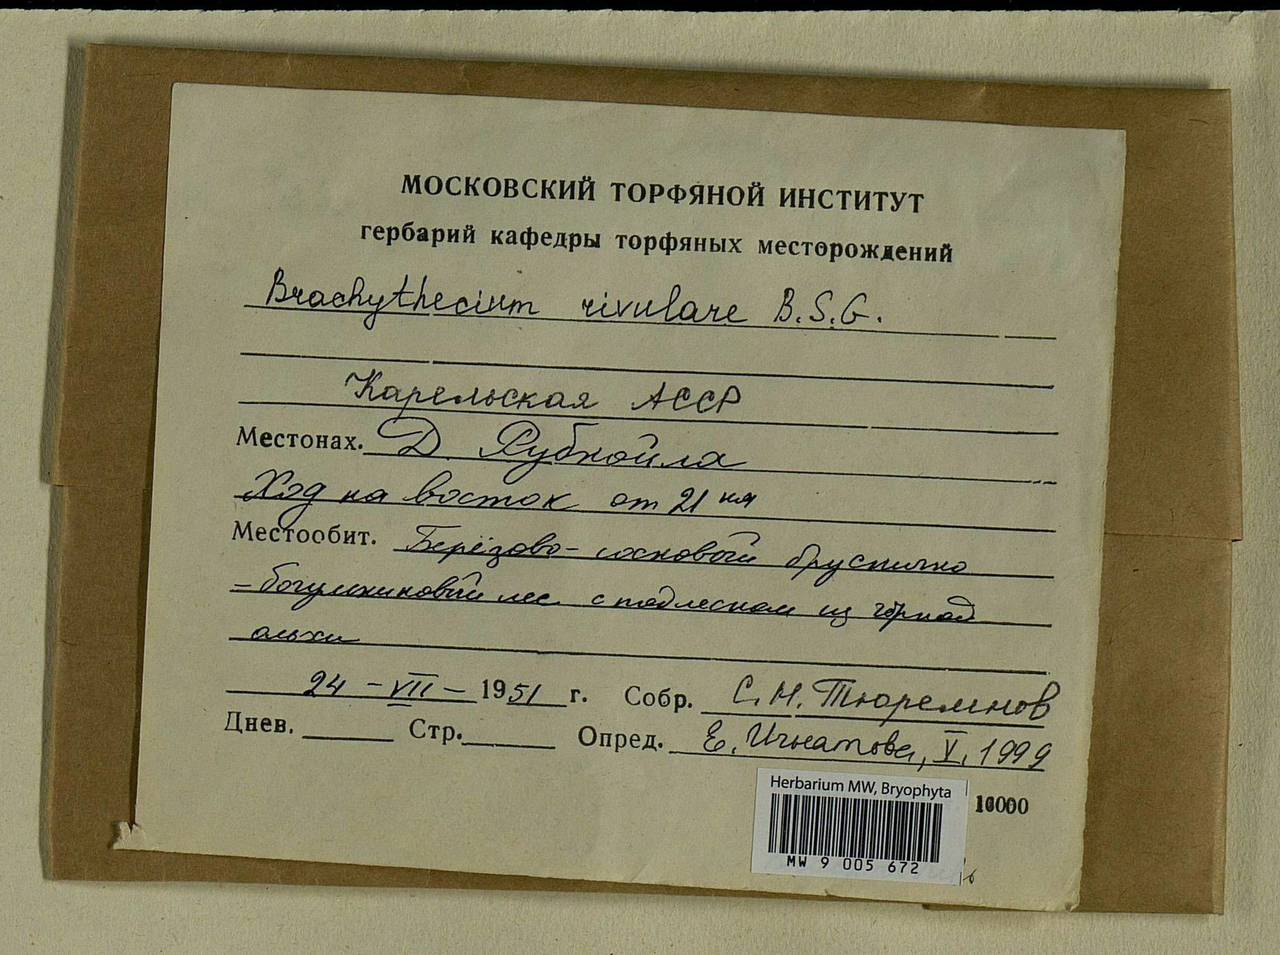 МОСКОВСКИЙ ТОРФЯНОЙ ИНСТИТУТ
гербарий кафедры торфяных месторождений
Brachythecium rivulare B.S.G.
Карельская АССР
Местонах. Д. Рубчойла
Ход на восток от 21 км
Местообит. Берёзово-сосновый бруснично
-богульниковый лес с подлеском из чёрной
ольхи
24 - VII - 1951 г. Собр. С.Н. Тюремнов
Днев. Стр. Опред. Е. Игнатова, V. 1999
Herbarium MW, Bryophyta
10000
MW 9 005 672